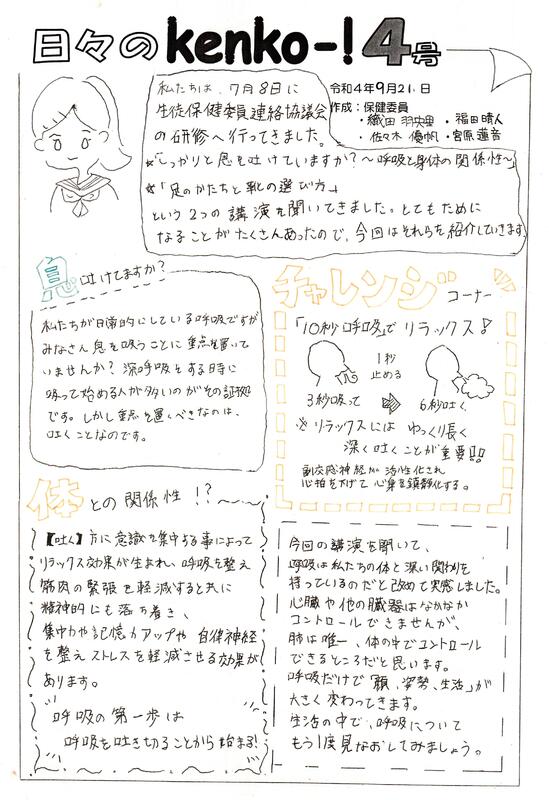 日々のkenko-!4号
令和4年9月21日
作成：保健委員
・織田 羽央里 ・福田晴人
・佐々木 優帆 ・宮原蓮音
私たちは、7月8日に
生徒保健委員連絡協議会
の研修へ行ってきました。
*「しっかりと息を吐けていますか？～呼吸と身体の関係性～」
*「足のかたちと靴の選び方」
という2つの講演を聞いてきました。とてもために
なることがたくさんあったので、今回はそれらを紹介していきます
息吐けてますか？
私たちが日常的にしている呼吸ですが
みなさん息を吸うことに重点を置いて
いませんか？深呼吸をする時に
吸って始める人が多いのがその証拠
です。しかし重点を置くべきなのは、
吐くことなのです。
チャレンジコーナー
「10秒呼吸」でリラックス!
1秒
止める
3秒吸って
6秒吐く
※リラックスにはゆっくり長く
深く吐くことが重要!!
副交感神経が活性化され
心拍を下げて心身を鎮静化する。
体との関係性!?
【吐く】方に意識を集中する事によって
リラックス効果が生まれ、呼吸を整え
筋肉の緊張を軽減すると共に
精神的にも落ち着き、
集中力や記憶力アップや自律神経
を整えストレスを軽減させる効果が
あります。
呼吸の第一歩は
呼吸を吐き切ることから始まる!
今回の講演を聞いて、
呼吸は私たちの体と深い関わりを
持っているのだと改めて実感しました。
心臓や他の臓器はなかなか
コントロールできませんが、
肺は唯一、体の中でコントロール
できるところだと思います。
呼吸だけで「顔、姿勢、生活」が
大きく変わってきます。
生活の中で、呼吸について
もう1度見なおしてみましょう。